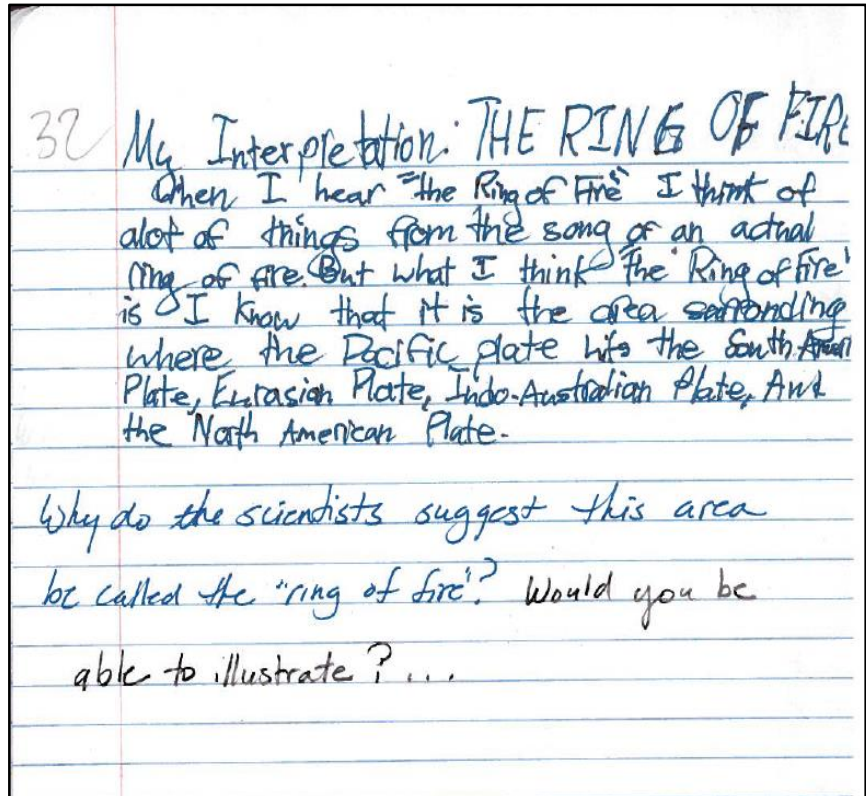 32
My Interpretation: THE RING OF FIRE
When I hear "the Ring of Fire" I think of
alot of things from the song or an actual
ring of fire. But what I think "The Ring of Fire"
is I know that it is the area surronding
where the Pacific plate hits the South Ameri
Plate, Eurasian Plate, Indo-Australian Plate, And
the North American Plate.
Why do the scientists suggest this area
be called the "ring of fire"? Would you be
able to illustrate? ...